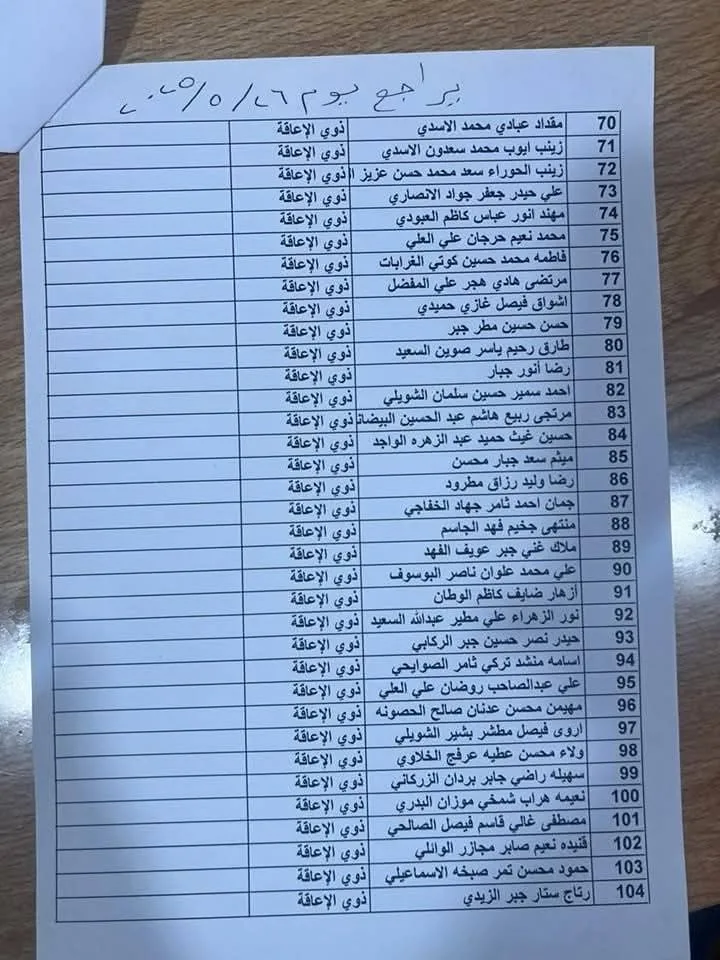 يراجع يوم ٢٠٢٥/٥/٢٦
70 مقداد عبادي محمد الاسدي ذوي الإعاقة
71 زينب ايوب محمد سعدون الاسدي ذوي الإعاقة
72 زينب الحوراء سعد محمد حسن عزيز ا ذوي الإعاقة
73 علي حيدر جعفر جواد الانصاري ذوي الإعاقة
74 مهند انور عباس كاظم العبودي ذوي الإعاقة
75 محمد نعيم حرجان علي العلي ذوي الإعاقة
76 فاطمه محمد حسين كوتي الغرابات ذوي الإعاقة
77 مرتضى هادي هجر علي المفضل ذوي الإعاقة
78 اشواق فيصل غازي حميدي ذوي الإعاقة
79 حسن حسين مطر جبر ذوي الإعاقة
80 طارق رحيم ياسر صوين السعيد ذوي الإعاقة
81 رضا أنور جبار ذوي الإعاقة
82 احمد سمير حسين سلمان الشويلي ذوي الإعاقة
83 مرتجى ربيع هاشم عبد الحسين البيضان ذوي الإعاقة
84 حسين غيث حميد عبد الزهره الواجد ذوي الإعاقة
85 ميثم سعد جبار محسن ذوي الإعاقة
86 رضا وليد رزاق مطرود ذوي الإعاقة
87 جمان احمد ثامر جهاد الخفاجي ذوي الإعاقة
88 منتهى جخيم فهد الجاسم ذوي الإعاقة
89 ملاك غني جبر عويف الفهد ذوي الإعاقة
90 علي محمد علوان ناصر البوسوف ذوي الإعاقة
91 أزهار ضايف كاظم الوطان ذوي الإعاقة
92 نور الزهراء علي مطير عبدالله السعيد ذوي الإعاقة
93 حيدر نصر حسين جبر الركابي ذوي الإعاقة
94 اسامه منشد تركي ثامر الصوايحي ذوي الإعاقة
95 علي عبدالصاحب روضان علي العلي ذوي الإعاقة
96 مهيمن محسن عدنان صالح الحصونه ذوي الإعاقة
97 اروى فيصل مطشر بشير الشويلي ذوي الإعاقة
98 ولاء محسن عطيه عرفج الخلاوي ذوي الإعاقة
99 سهيله راضي جابر بردان الزركاني ذوي الإعاقة
100 نعيمه هراب شمخي موزان البدري ذوي الإعاقة
101 مصطفى غالي قاسم فيصل الصالحي ذوي الإعاقة
102 قنيده نعيم صابر مجازر الوائلي ذوي الإعاقة
103 حمود محسن تمر صبخه الاسماعيلي ذوي الإعاقة
104 رتاج ستار جبر الزيدي ذوي الإعاقة